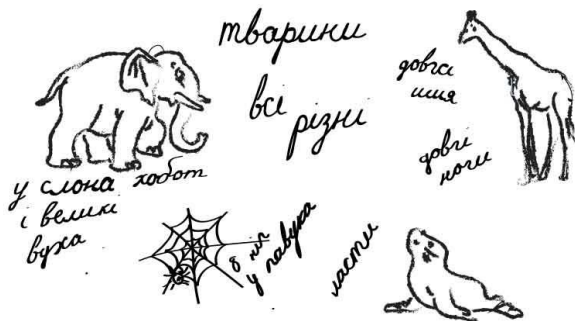 тварини
всі
різні
довга
шия
довгі
ноги
у слона хобот
і великі
вуха
8 ніг
у павука
ласти